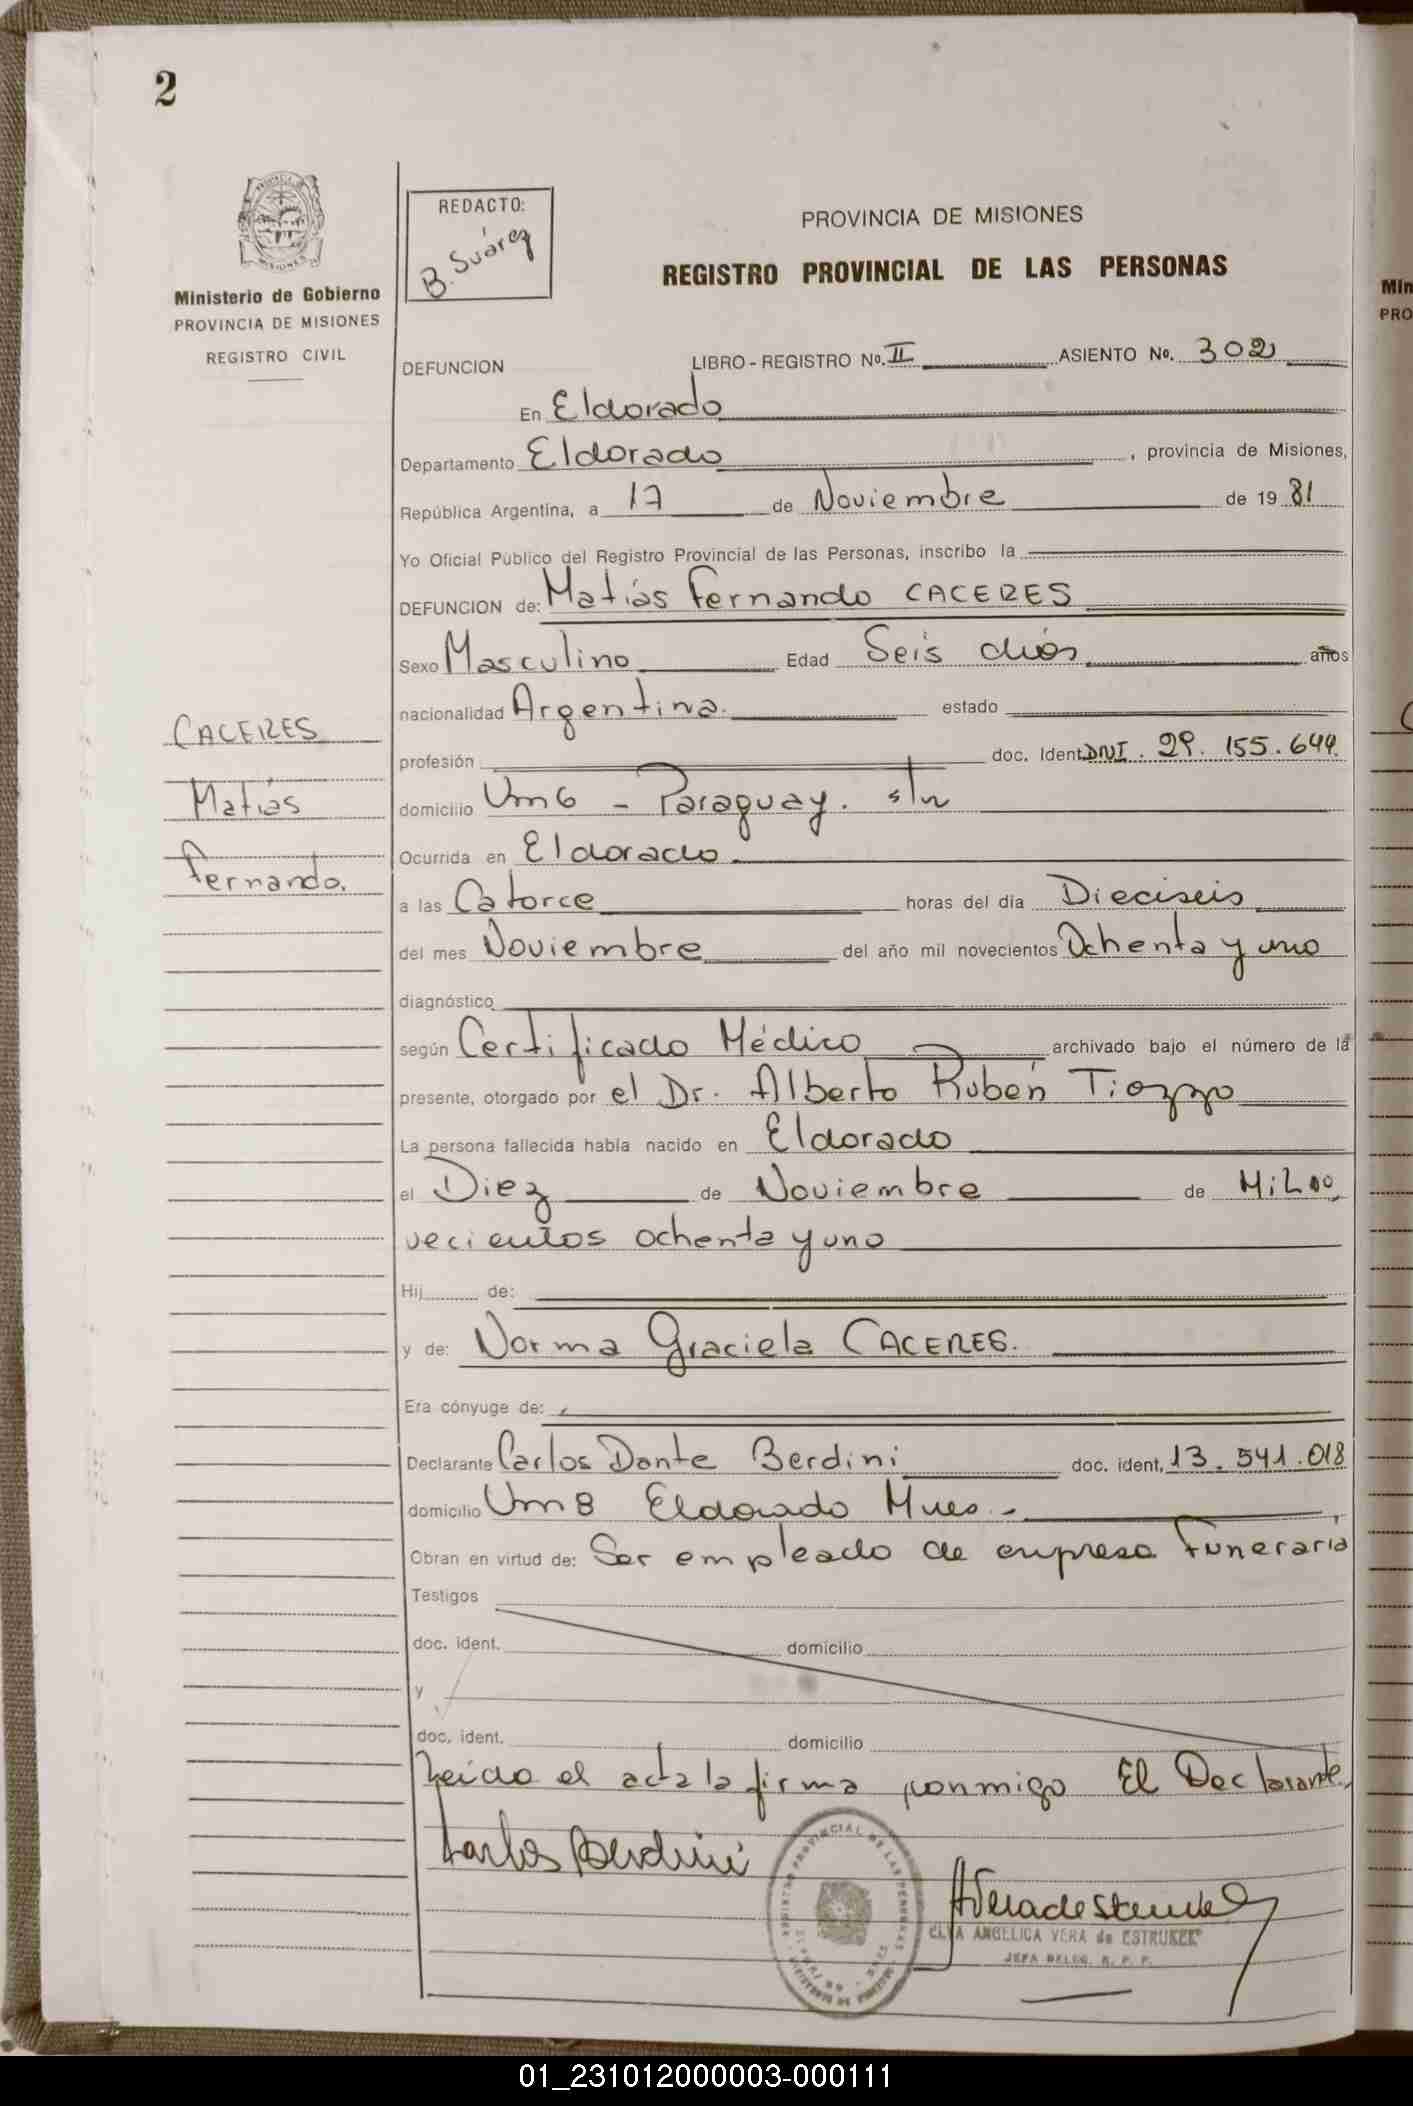 2
REDACTO:
B. Suárez
PROVINCIA DE MISIONES
REGISTRO PROVINCIAL DE LAS PERSONAS
Ministerio de Gobierno
PROVINCIA DE MISIONES
REGISTRO CIVIL
DEFUNCION LIBRO - REGISTRO No. II ASIENTO No. 302
En Eldorado
Departamento Eldorado, provincia de Misiones,
República Argentina, a 17 de Noviembre de 19 81
Yo Oficial Público del Registro Provincial de las Personas, inscribo la
DEFUNCION de: Matías Fernando CACERES
Sexo Masculino Edad Seis días años
nacionalidad Argentina. estado
profesión doc. Ident. DNI. 29.155.644.
domicilio Km 6 - Paraguay. s/n
Ocurrida en Eldorado.
a las Catorce horas del día Dieciseis
del mes Noviembre del año mil novecientos Ochenta y uno
diagnóstico
según Certificado Médico archivado bajo el número de la
presente, otorgado por el Dr. Alberto Rubén Tiozzo
La persona fallecida había nacido en Eldorado
el Diez de Noviembre de Mil no
vecientos ochenta y uno
Hij de:
y de: Norma Graciela CACERES.
Era cónyuge de:
Declarante Carlos Dante Berdini doc. ident. 13.541.018
domicilio Km 8 Eldorado Mnes.-
Obran en virtud de: Ser empleado de empresa Funeraria
Testigos
doc. ident. domicilio
y
doc. ident. domicilio
Leída el acta la firma conmigo El Declarante.
Carlos Berdini
CACERES
Matías
Fernando.
REGISTRO PROVINCIAL DE LAS PERSONAS
ELVA ANGELICA VERA de ESTRUKEL
JEFA DELEG. R. P. P.
Min
PRO
C
01_231012000003-000111